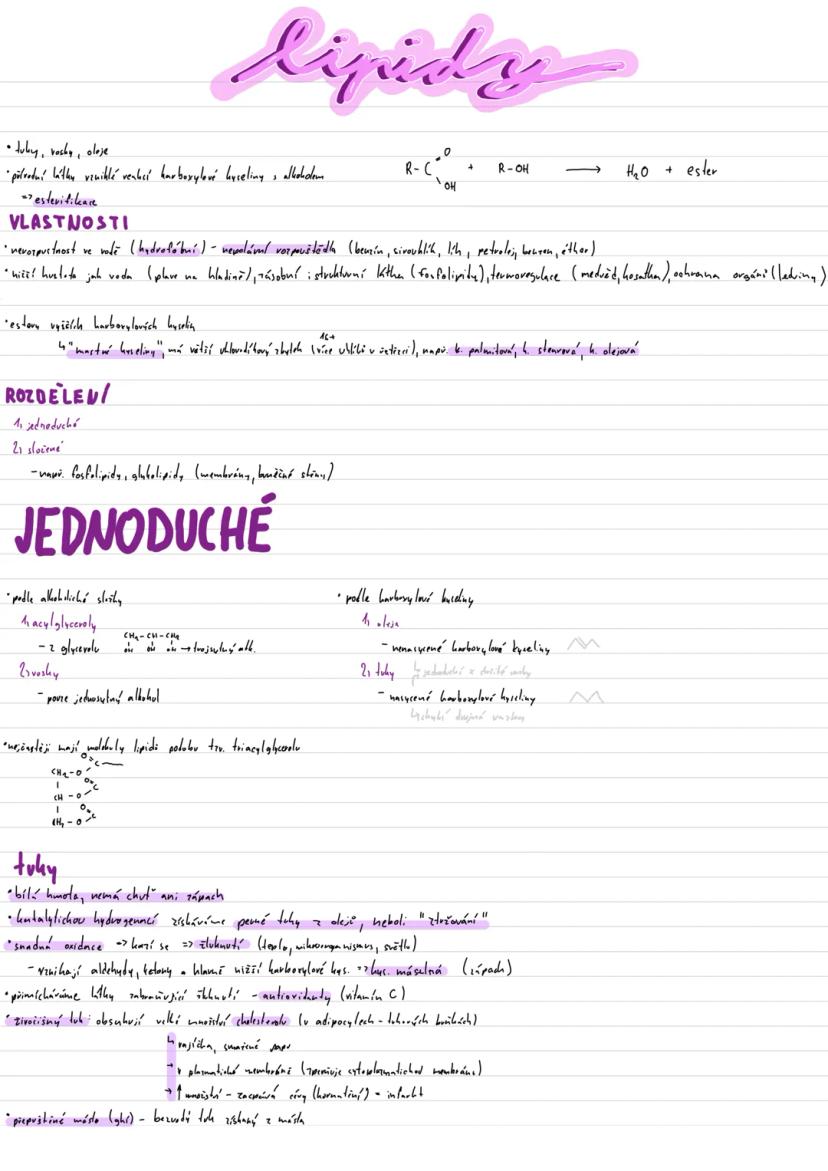 lipidy
• tuky, vosky, oleje
• přírodní látky vzniklé reakcí karboxylové kyseliny s alkoholem
=> esterifikace
R-C O OH + R-OH → H₂O + ester
VLASTNOSTI
• nerozpustnost ve vodě (hydrofóbní) - nepolární rozpouštědla (benzín, sirouhlík, líh, petrolej, benzen, éthor)
• nižší hustota jak voda (plave na hladině), zásobní i strukturní látka (fosfolipidy), termoregulace (medvěd, kosatka), ochrana orgánů (ledviny)
• estery vyšších karboxylových kyselin
16+
↳ "mastné kyseliny", má větší uhlovodíkový zbytek (více uhlíků v řetězci), např. k. palmitová, k. stearová, k. olejová
ROZDĚLENÍ
1, jednoduché
2, složené
- např. fosfolipidy, glykolipidy (membrány, buněčné stěny)
JEDNODUCHÉ
• podle alkoholické složky
1, acylglyceroly
- z glycerolu CH₂-CH-CH₂ OH OH OH → trojsytný alk.
2, vosky
- pouze jednosytný alkohol
• podle karboxylové kyseliny
1, oleje
- nenasycené karboxylové kyseliny
↳ jednoduché x dvojité vazby
2, tuky
- nasycené karboxylové kyseliny
↳ chybí dvojná vazba
• nejčastěji mají molekuly lipidů podobu tzv. triacylglycerolu
O=C
CH₂-O
O=C
CH-O
O=C
CH₂-O
tuky
• bílá hmota, nemá chuť ani zápach
• katalytickou hydrogenací získáváme pevné tuky z olejů, neboli "ztužování"
• snadná oxidace => kazí se => žluknutí (teplo, mikroorganismy, světlo)
- vznikají aldehydy, ketony a hlavně nižší karboxylové kys. => kys. máselná (zápach)
• přimícháváme látky zabraňující žluknutí - antioxidanty (vitamín C)
• živočišný tuk: obsahují velké množství cholesterolu (v adipocytech - tukových buňkách)
↳ vajíčka, smažené
→ v plasmatické membráně (zpevňuje cytoplazmatickou membránu)
→ ↑ množství - zacpává cévy (kornatění) = infarkt
• přepuštěné máslo (ghí) - bezvodý tuk získaný z másla